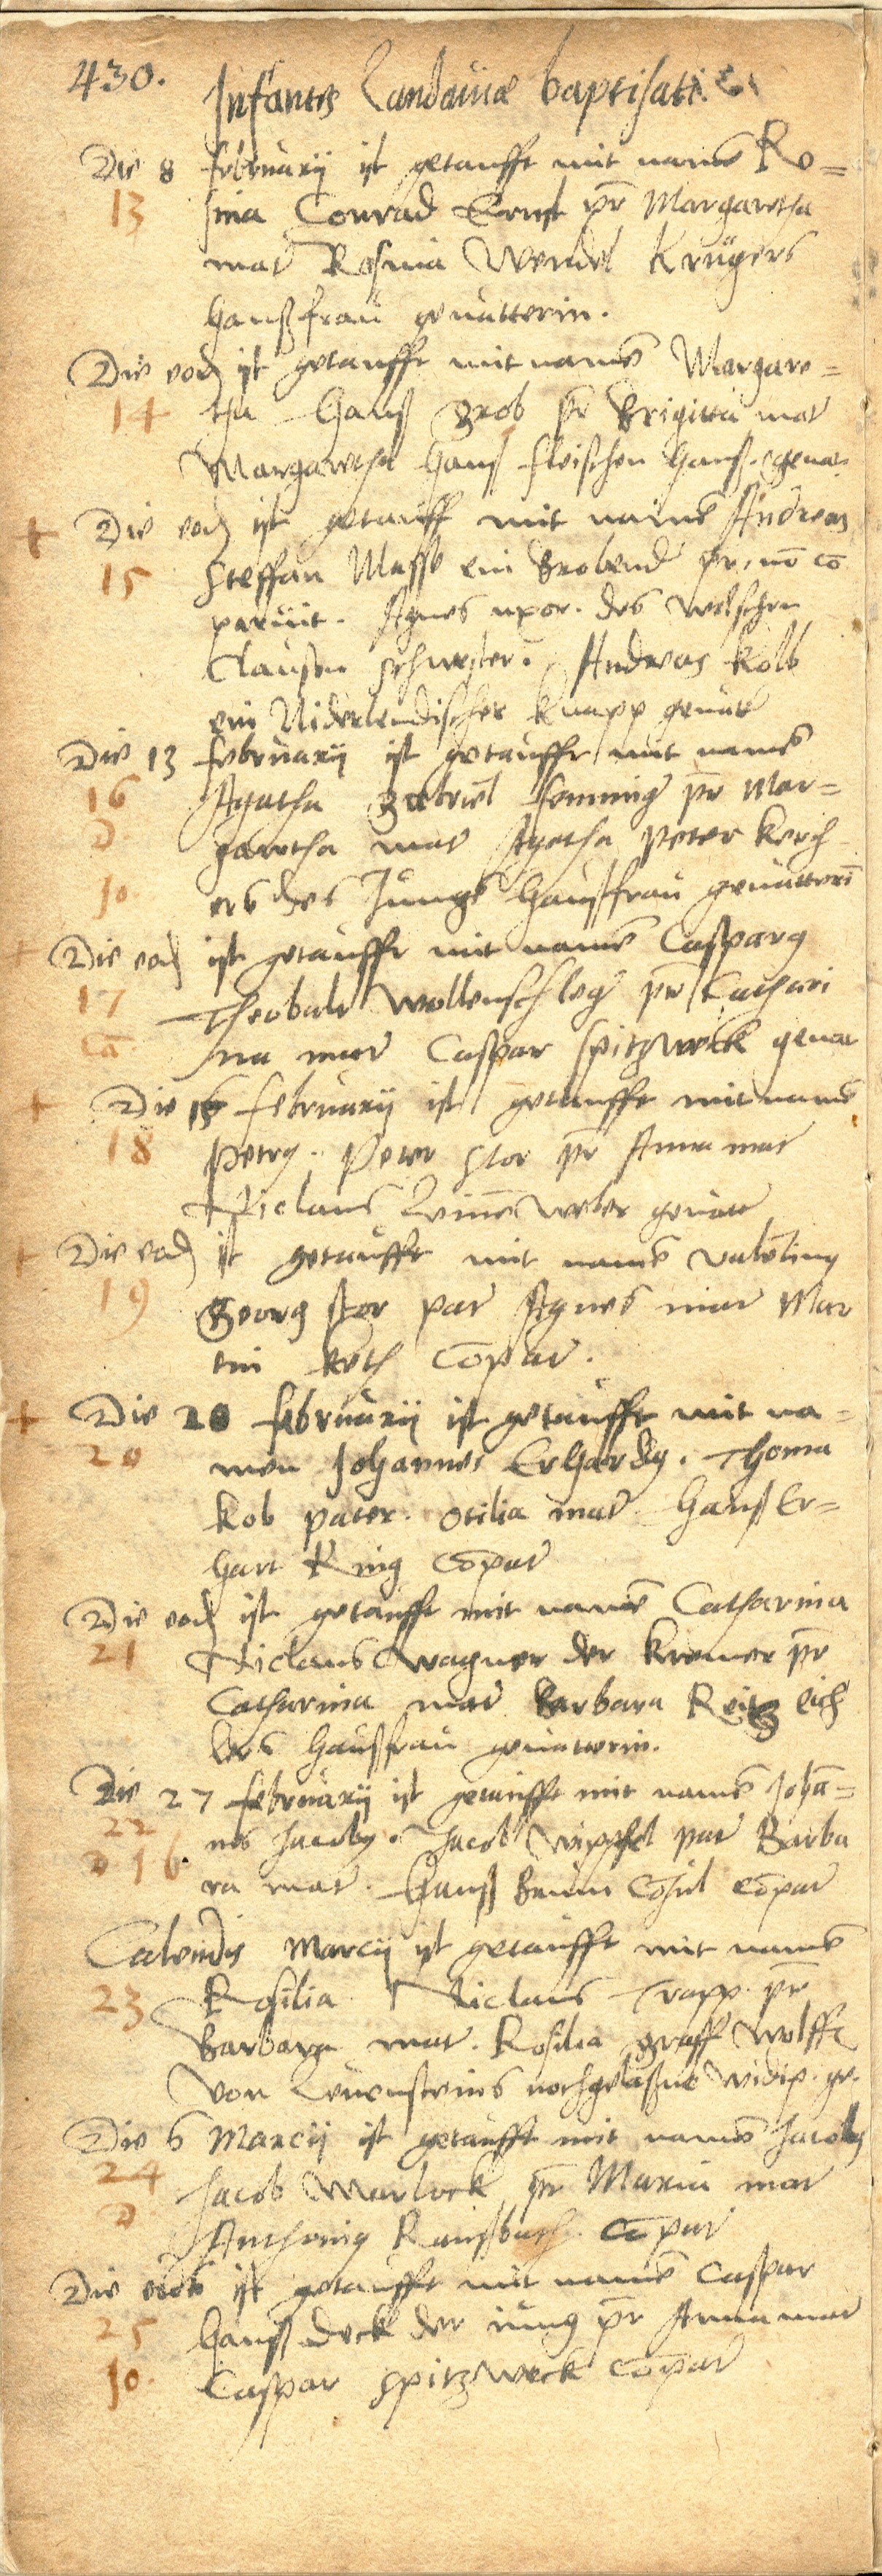 430.
Infantes Landauiæ baptisati.
Die 8 februarij ist getaufft mit namē Ro=
13 sina Conrad Ernst pr̄ Margaretha
mat̄ Rosina Wendel Krügers
haußfrau geuatterin.
Die eod ist getaufft mit namē Margare=
14 tha Hanß Grob pr̄ Brigitta mat̄
Margaretha Hanß fleischen hauß. geuat.
+ Die eod ist getaufft mit namē Andreas
15 Steffan Masse ein Brobend pr. nō cō
paruit. Agnes uxor. des welschen
Clausen schwester. Andreas Kolb
ein Niderlendischer Knapp geuatt̄
Die 13 februarij ist getaufft mit namē
16 Agatha Gabriel pr̄ Mar=
D garetha mat̄ Agatha Peter Kerch=
Jo. ers des Jungē haußfrau geuatterī
+ Die eod ist getaufft mit namē Casparꝰ
17 Theobalt Wollenschleḡ pr̄ Cathari
Ca na mat̄ Caspar Spitzweck geuat
+ Die 15 februarij ist getaufft mit namē
18 Petrꝰ. Peter Stor pr̄ Anna mat̄
Niclaus Leinē weber geuatt̄
+ Die eod ist getaufft mit namē Valētinꝰ
19 Georg stor pat̄ Agnes mat̄ Mar
tin Keth Cōpat̄.
+ Die 20 februarij ist getaufft mit na=
20 men Johannes Erhardꝰ. Thoma
Kob pater. Otilia mat̄. Hanß Er=
hart King Cōpat̄
Die eod ist getaufft mit namē Catharina
21 Niclaus Wagner der Kremer pr̄
Catharina mat̄ Barbara Reitz eich
lers haußfrau geuatterin.
Die 27 februarij ist getaufft mit namē Johā=
22 nes Jacobꝰ. Jacob Wippfel pat̄ Barba
D 16. ra mat̄. Hanß Braun Cōsul Cōpat̄
Calendis Marcij ist getaufft mit namē
23 Rosilia Niclaus Trapp. pr̄
Barbara mat̄. Rosilia graff Wolffē
von Leuensteins nochgelaßne widip. ge.
Die 6 Marcij ist getaufft mit namē Jacobꝰ
24 Jacob Warlock pr̄ Maria mat̄
D Anthonig Raußbach. Cōpat̄
Die eiusdē ist getaufft mit namē Caspar
25 Hanß Deck der iung pr̄ Anna mat̄
Jo. Caspar Spitzweck Cōpat̄